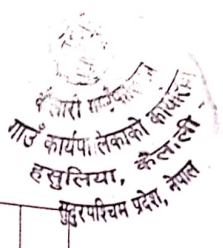 कैलारी गाउँपालिका
गाउँ कार्यपालिकाको कार्यालय
हसुलिया, कैलाली
सुदुरपश्चिम प्रदेश, नेपाल